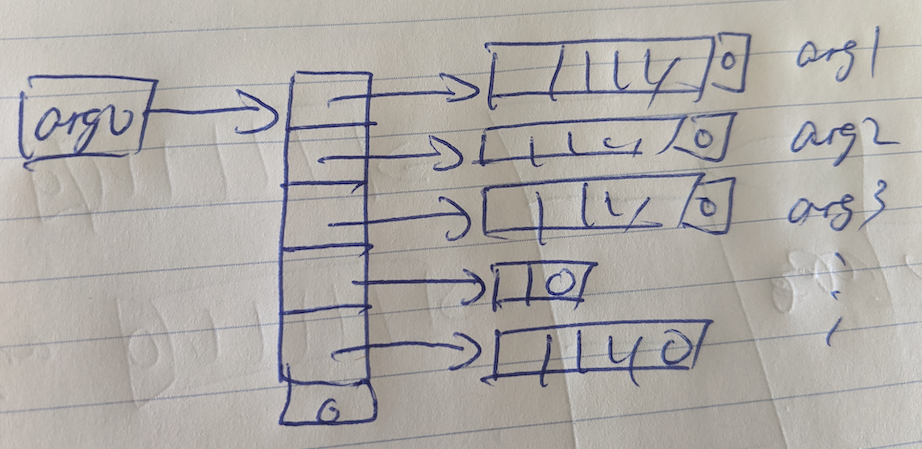 argv
0 arg1
0 arg2
0 arg3
0
0
0